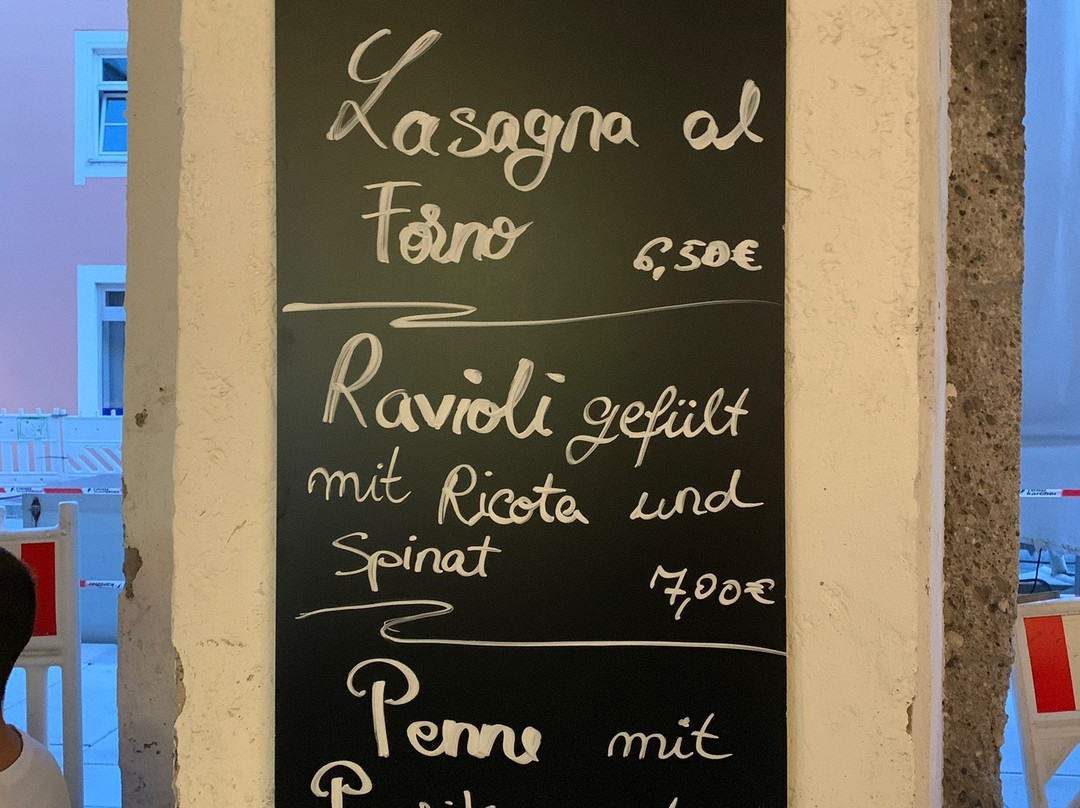 Lasagna al
Forno
6,50€
Ravioli gefült
mit Ricota und
Spinat
7,00€
Penne mit